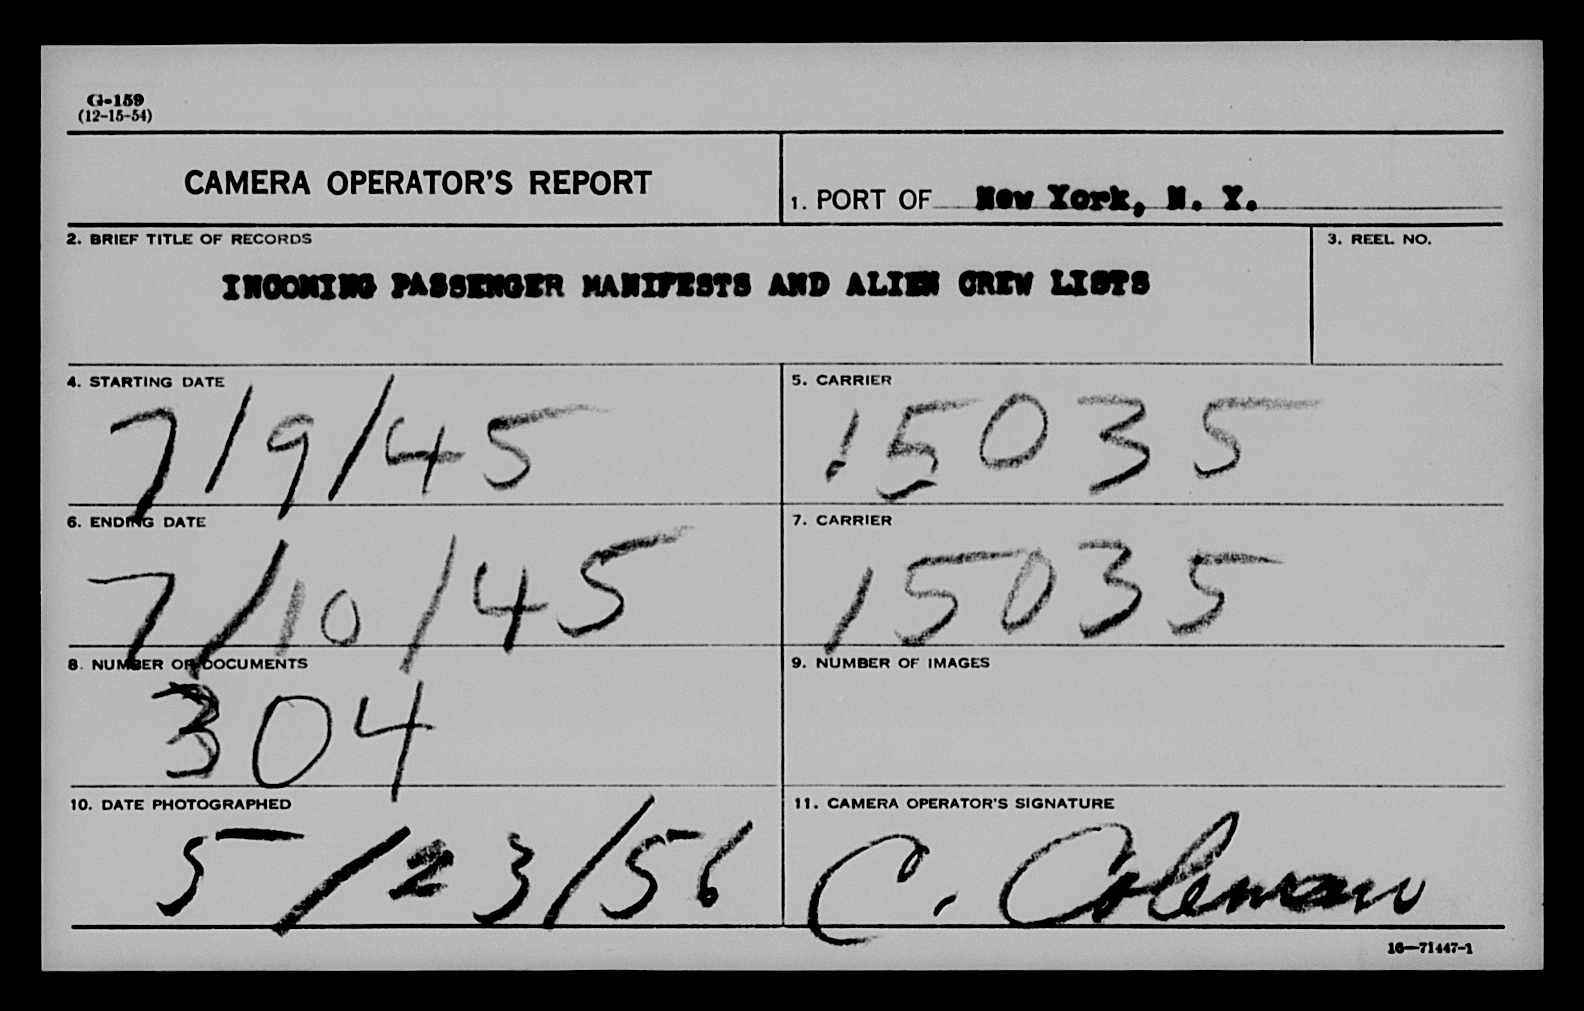 G-159
(12-15-54)
CAMERA OPERATOR'S REPORT
1. PORT OF New York, N. Y.
2. BRIEF TITLE OF RECORDS
3. REEL NO.
INCOMING PASSENGER MANIFESTS AND ALIEN CREW LISTS
4. STARTING DATE
5. CARRIER
7/9/45
15035
6. ENDING DATE
7. CARRIER
7/10/45
15035
8. NUMBER OF DOCUMENTS
9. NUMBER OF IMAGES
304
10. DATE PHOTOGRAPHED
11. CAMERA OPERATOR'S SIGNATURE
5/23/56
C. Coleman
16—71447-1